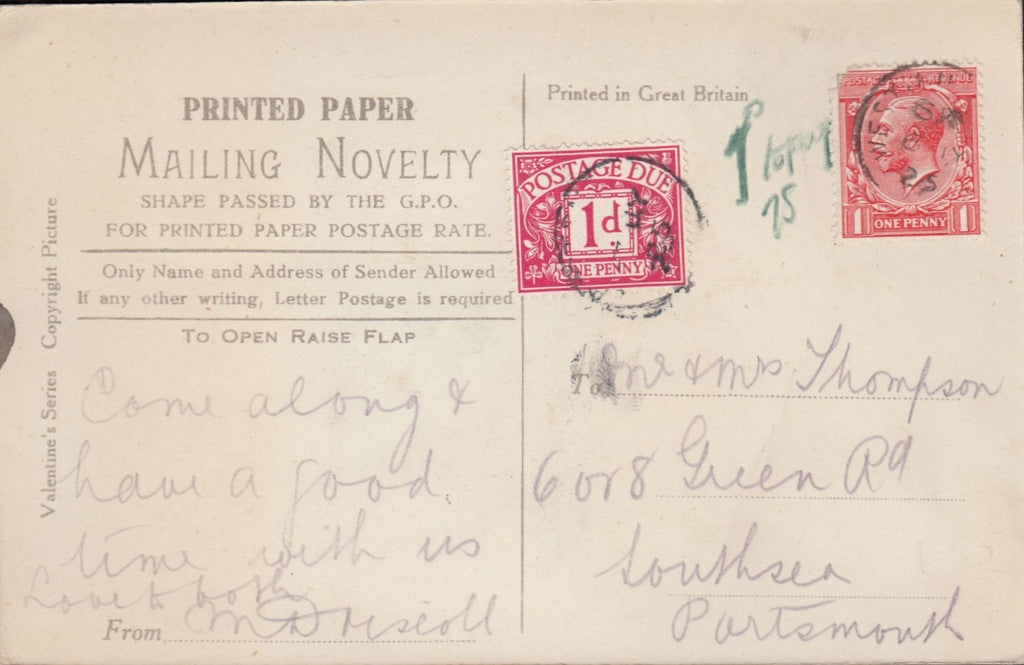 PRINTED PAPER
MAILING NOVELTY
SHAPE PASSED BY THE G.P.O.
FOR PRINTED PAPER POSTAGE RATE.
Only Name and Address of Sender Allowed
If any other writing, Letter Postage is required
TO OPEN RAISE FLAP
Valentine's Series Copyright Picture
Come along &
have a good
time with us
Love to both
From M Driscoll
Printed in Great Britain
POSTAGE DUE
1d
ONE PENNY
15
POSTAGE REVENUE
1 ONE PENNY 1
23
To Mr & Mrs Thompson
6 or 8 Green Rd
Southsea
Portsmouth